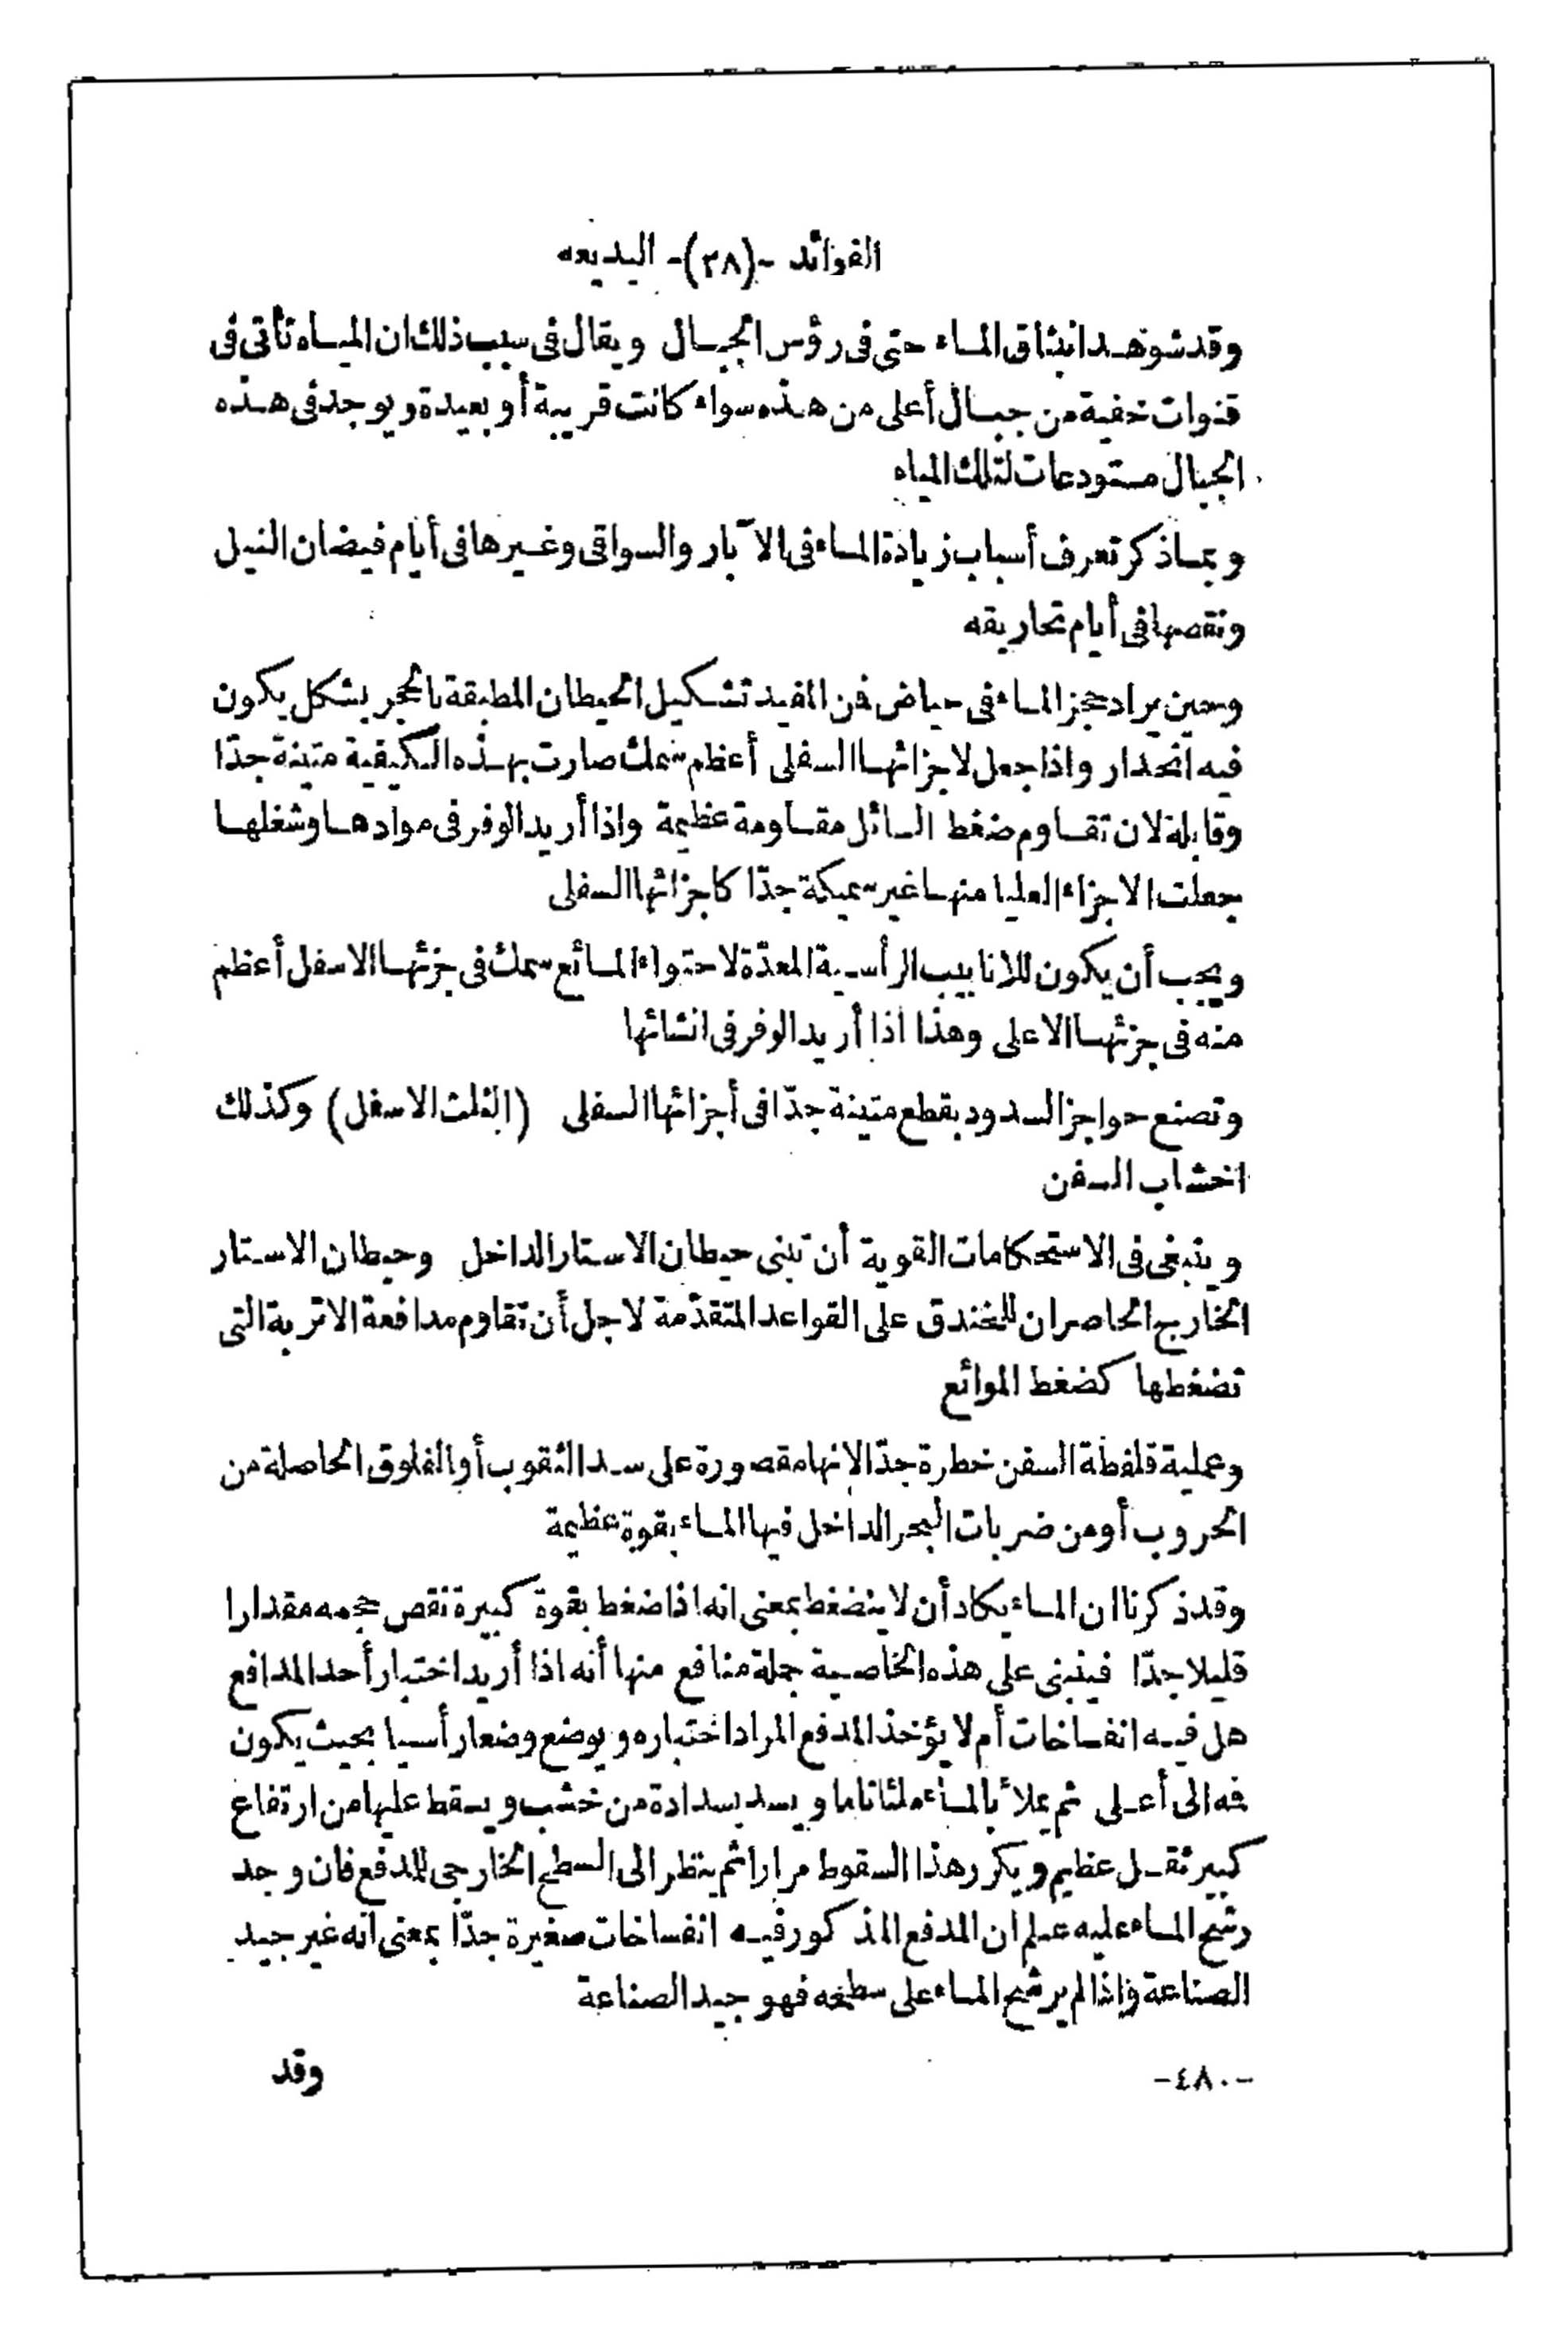 الفوائد -(٣٨)- البديعه
وقد شوهد انبثاق الماء حتى فى رؤس الجبال ويقال فى سبب ذلك ان المياه تأتى فى
قنوات خفية من جبال أعلى من هذه سواء كانت قريبة أو بعيدة ويوجد فى هذه
الجبال مستودعات لتلك المياه
وبما ذكر تعرف أسباب زيادة الماء فى الآبار والسواقى وغيرها فى أيام فيضان النيل
ونقصها فى أيام تحاريقه
وحين يراد حجز الماء فى حياض فمن المفيد تشكيل الحيطان المطبقة بالحجر بشكل يكون
فيه انحدار واذا جعل لاجزائها السفلى أعظم سمك صارت بهذه الكيفية متينة جدّا
وقابلة لان تقاوم ضغط السائل مقاومة عظيمة واذا أريد الوفر فى موادها وشغلها
جعلت الاجزاء العليا منها غير سميكة جدّا كاجزائها السفلى
ويجب أن يكون للانابيب الرأسية المعدّة لاحتواء المائع سمك فى جزئها الاسفل أعظم
منه فى جزئها الاعلى وهذا اذا أريد الوفر فى انشائها
وتصنع حواجز السدود بقطع متينة جدّا فى أجزائها السفلى (الثلث الاسفل) وكذلك
اخشاب السفن
وينبغى فى الاستحكامات القوية أن تبنى حيطان الاستار الداخل وحيطان الاستار
الخارج الحاصران للخندق على القواعد المتقدّمة لاجل أن تقاوم مدافعة الاتربة التى
تضغطها كضغط الموائع
وعملية قلفطة السفن خطرة جدّا لانها مقصورة على سد الثقوب أو الفلوق الحاصلة من
الحروب أو من ضربات البحر الداخل فيها الماء بقوة عظيمة
وقد ذكرنا ان الماء يكاد أن لا ينضغط بمعنى انه اذا ضغط بقوة كبيرة نقص حجمه مقدارا
قليلا جدّا فينبنى على هذه الخاصية جملة منافع منها أنه اذا أريد اختبار أحد المدافع
هل فيه انفساخات أم لا يؤخذ المدفع المراد اختباره ويوضع وضعا رأسيا بحيث يكون
فمه الى أعلى ثم يملأ بالماء ملئا تاما ويسد بسدادة من خشب ويسقط عليها من ارتفاع
كبير ثقل عظيم ويكرر هذا السقوط مرارا ثم ينظر الى السطح الخارجى للمدفع فان وجد
رشح الماء عليه علم ان المدفع المذكور فيه انفساخات صغيرة جدّا بمعنى انه غير جيد
الصناعة واذا لم يرشح الماء على سطحه فهو جيد الصناعة
وقد
-٤٨٠-